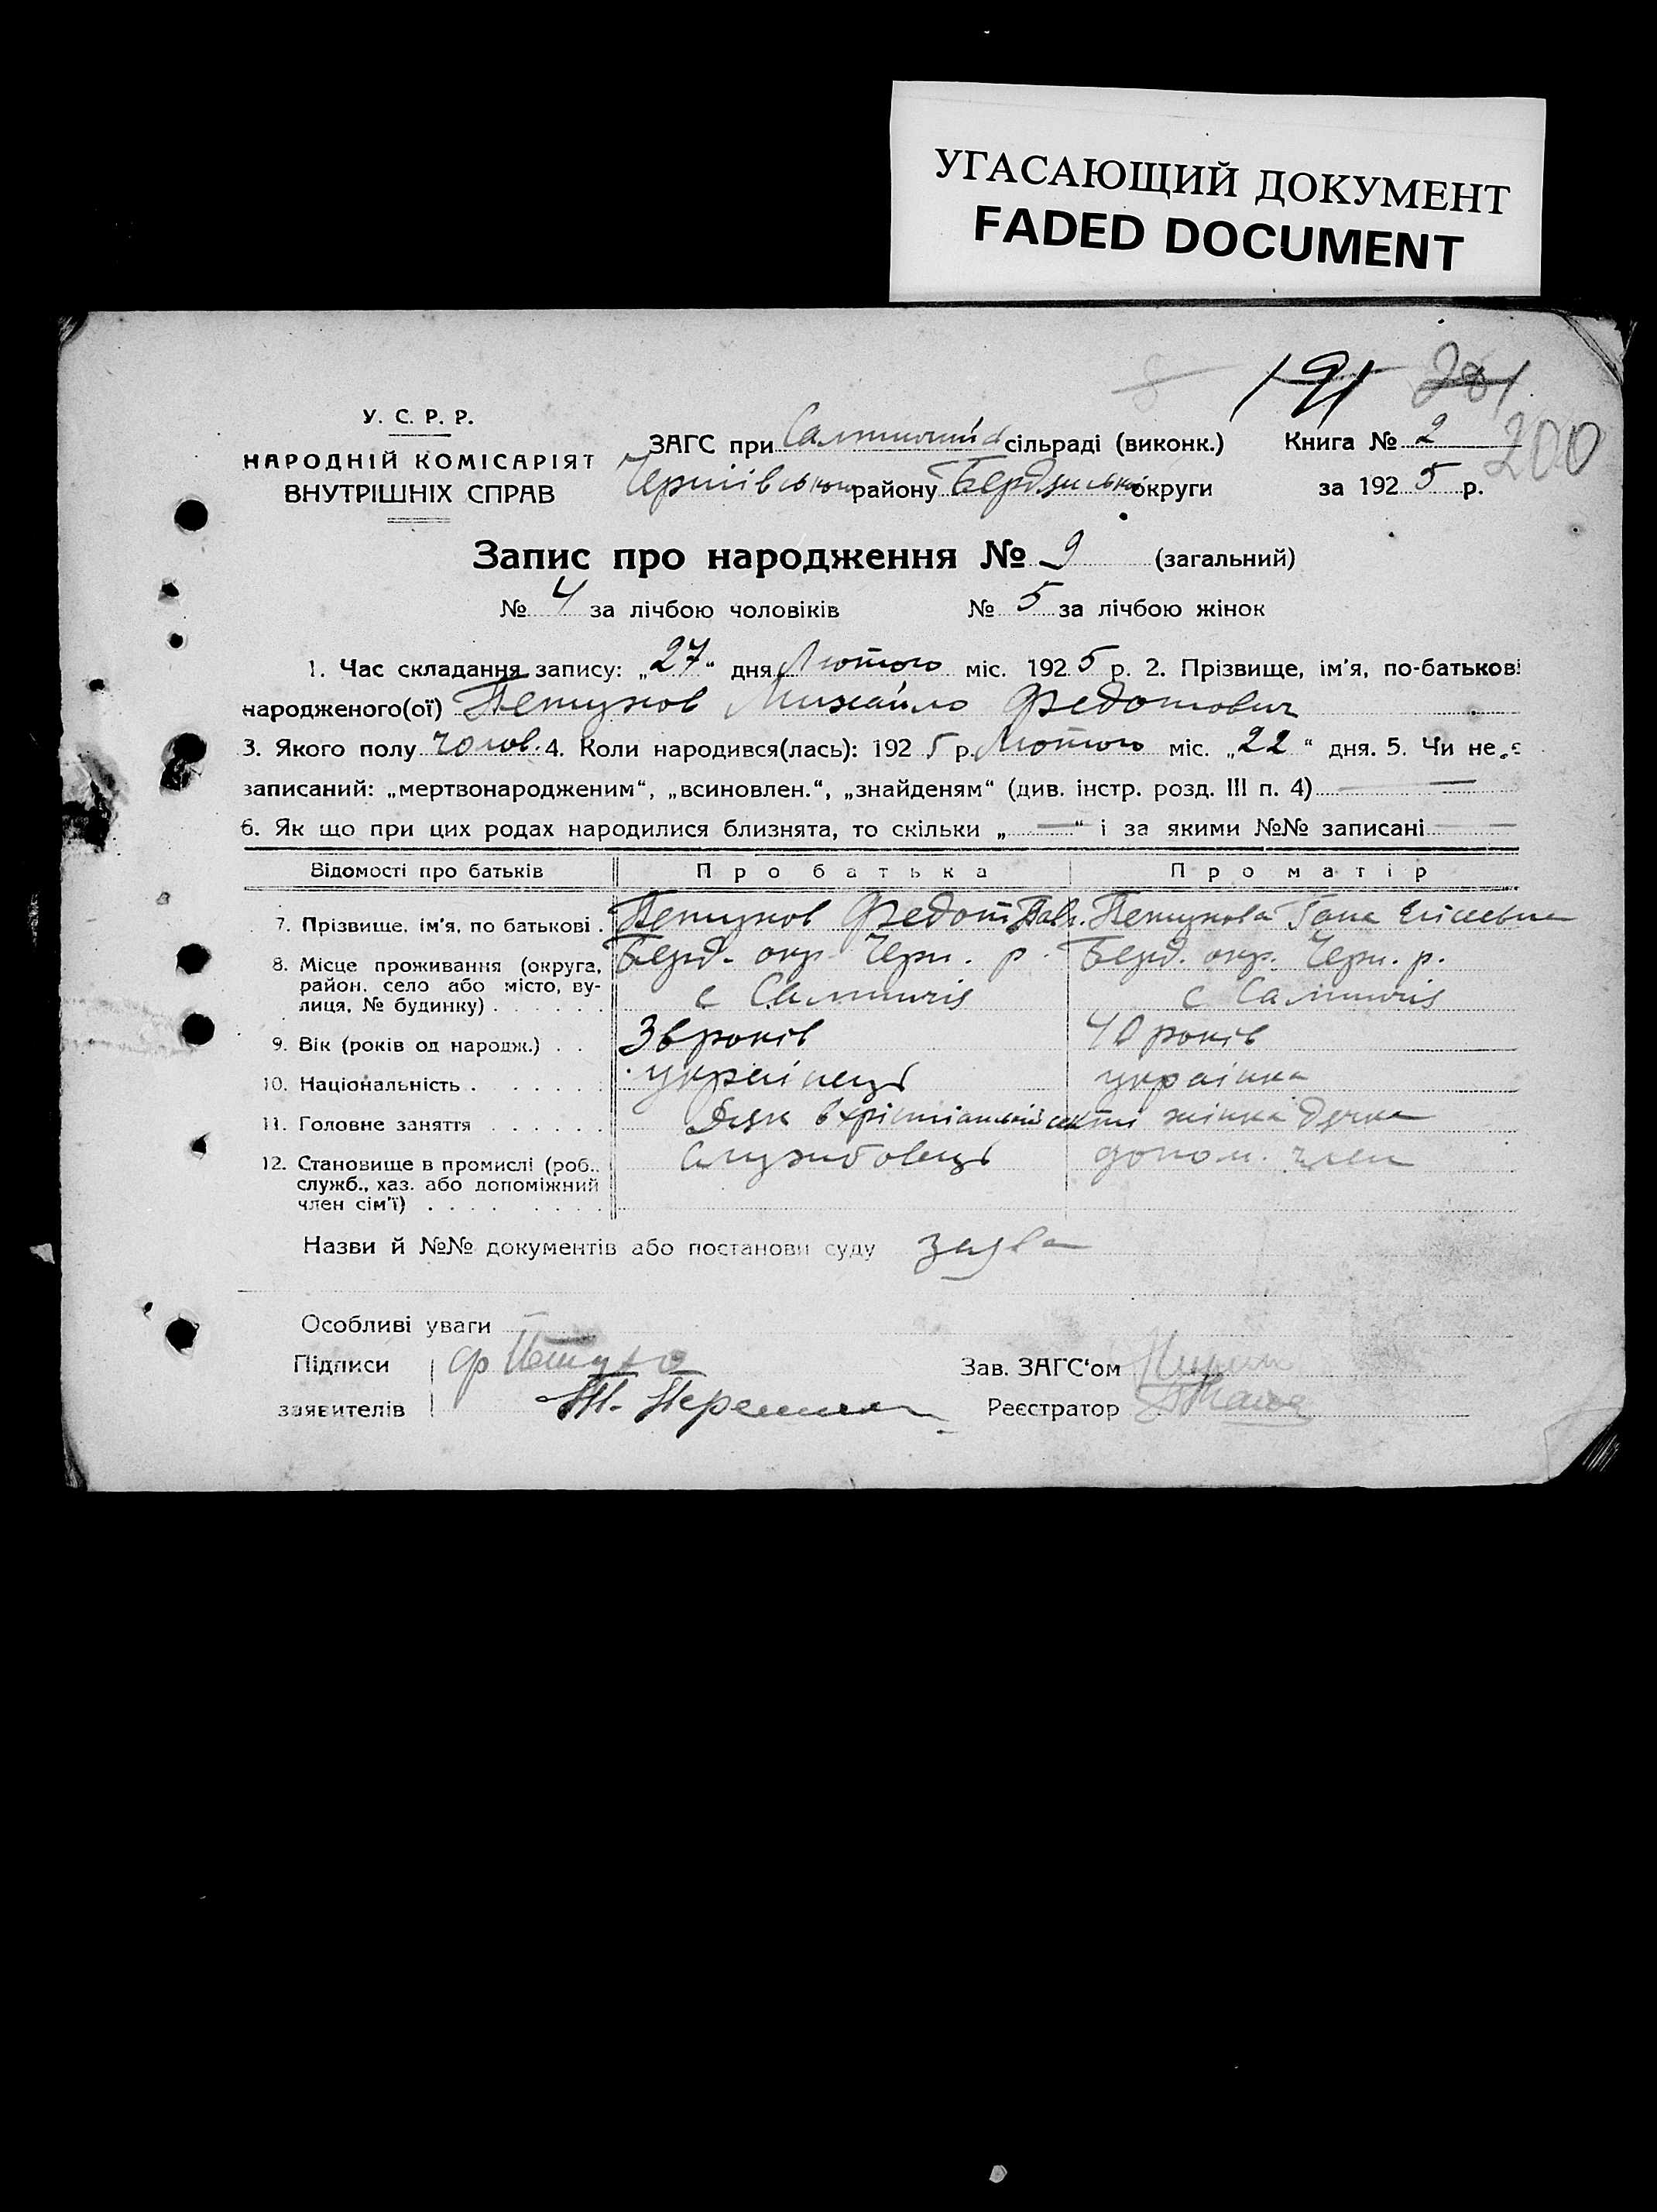 УГАСАЮЩИЙ ДОКУМЕНТ
FADED DOCUMENT
191 281
200
У. С. Р. Р.
НАРОДНІЙ КОМІСАРІЯТ
ВНУТРІШНІХ СПРАВ
ЗАГС при сільраді (виконк.) Книга № 2
району округи за 1925 р.
Запис про народження № 9 (загальний)
№ 4 за лічбою чоловіків № 5 за лічбою жінок
1. Час складання запису: „27“ дня Лютого міс. 1925 р. 2. Прізвище, ім'я, по-батькові
народженого(ої) Петухов Михайло Федотович
3. Якого полу чолов. 4. Коли народився(лась): 1925 р. Лютого міс. „22“ дня. 5. Чи не є
записаний: „мертвонародженим“, „всиновлен.“, „знайденям“ (див. інстр. розд. III п. 4) —
6. Як що при цих родах народилися близнята, то скільки „—“ і за якими №№ записані —
Відомості про батьків Про батька Про матір
7. Прізвище, ім'я, по батькові . Петухов Федот Павл. Петухова Гана Елісеевна
8. Місце проживання (округа, Берд. окр. Черн. р. Берд. окр. Черн. р.
район, село або місто, ву-
лиця, № будинку) . . . . . . с Салтичія с Салтичія
9. Вік (років од народж.) . . 36 років 40 років
10. Національність . . . . . . українець українка
11. Головне заняття . . . . . . Дяк в хрістіанській секті жінка дяка
12. Становище в промислі (роб., службовець допом. член
служб., хаз. або допоміжний
член сім'ї) . . . . . . . .
Назви й №№ документів або постанови суду заява
Особливі уваги
Підписи Ф Петухо Зав. ЗАГС'ом
заявителів Реєстратор